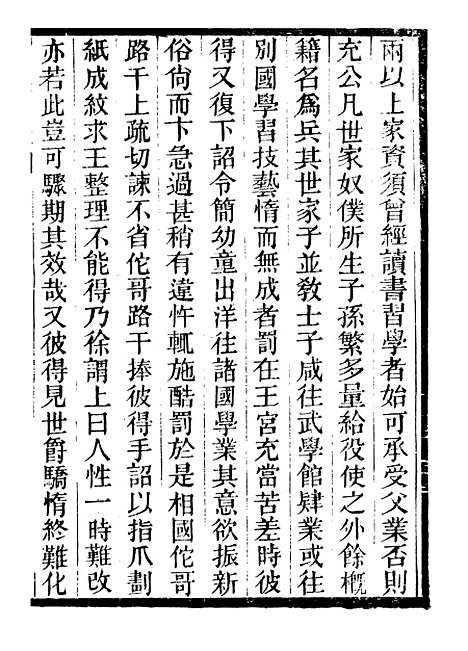 兩以上家資須曾經讀書習學者始可承受父業否則
充公凡世家奴僕所生子孫繁多量給役使之外餘概
籍名為兵其世家子並敎士子咸往武學館肄業或往
別國學習技藝惰而無成者罰在王宮充當苦差時彼
得又復下詔令簡幼童出洋往諸國學業其意欲振新
俗尙而卞急過甚稍有違忤輒施酷罰於是相國佗哥
路干上疏切諫不省佗哥路干捧彼得手詔以指爪劃
紙成紋求王整理不能得乃徐謂上曰人性一時難改
亦若此豈可驟期其效哉又彼得見世爵驕惰終難化